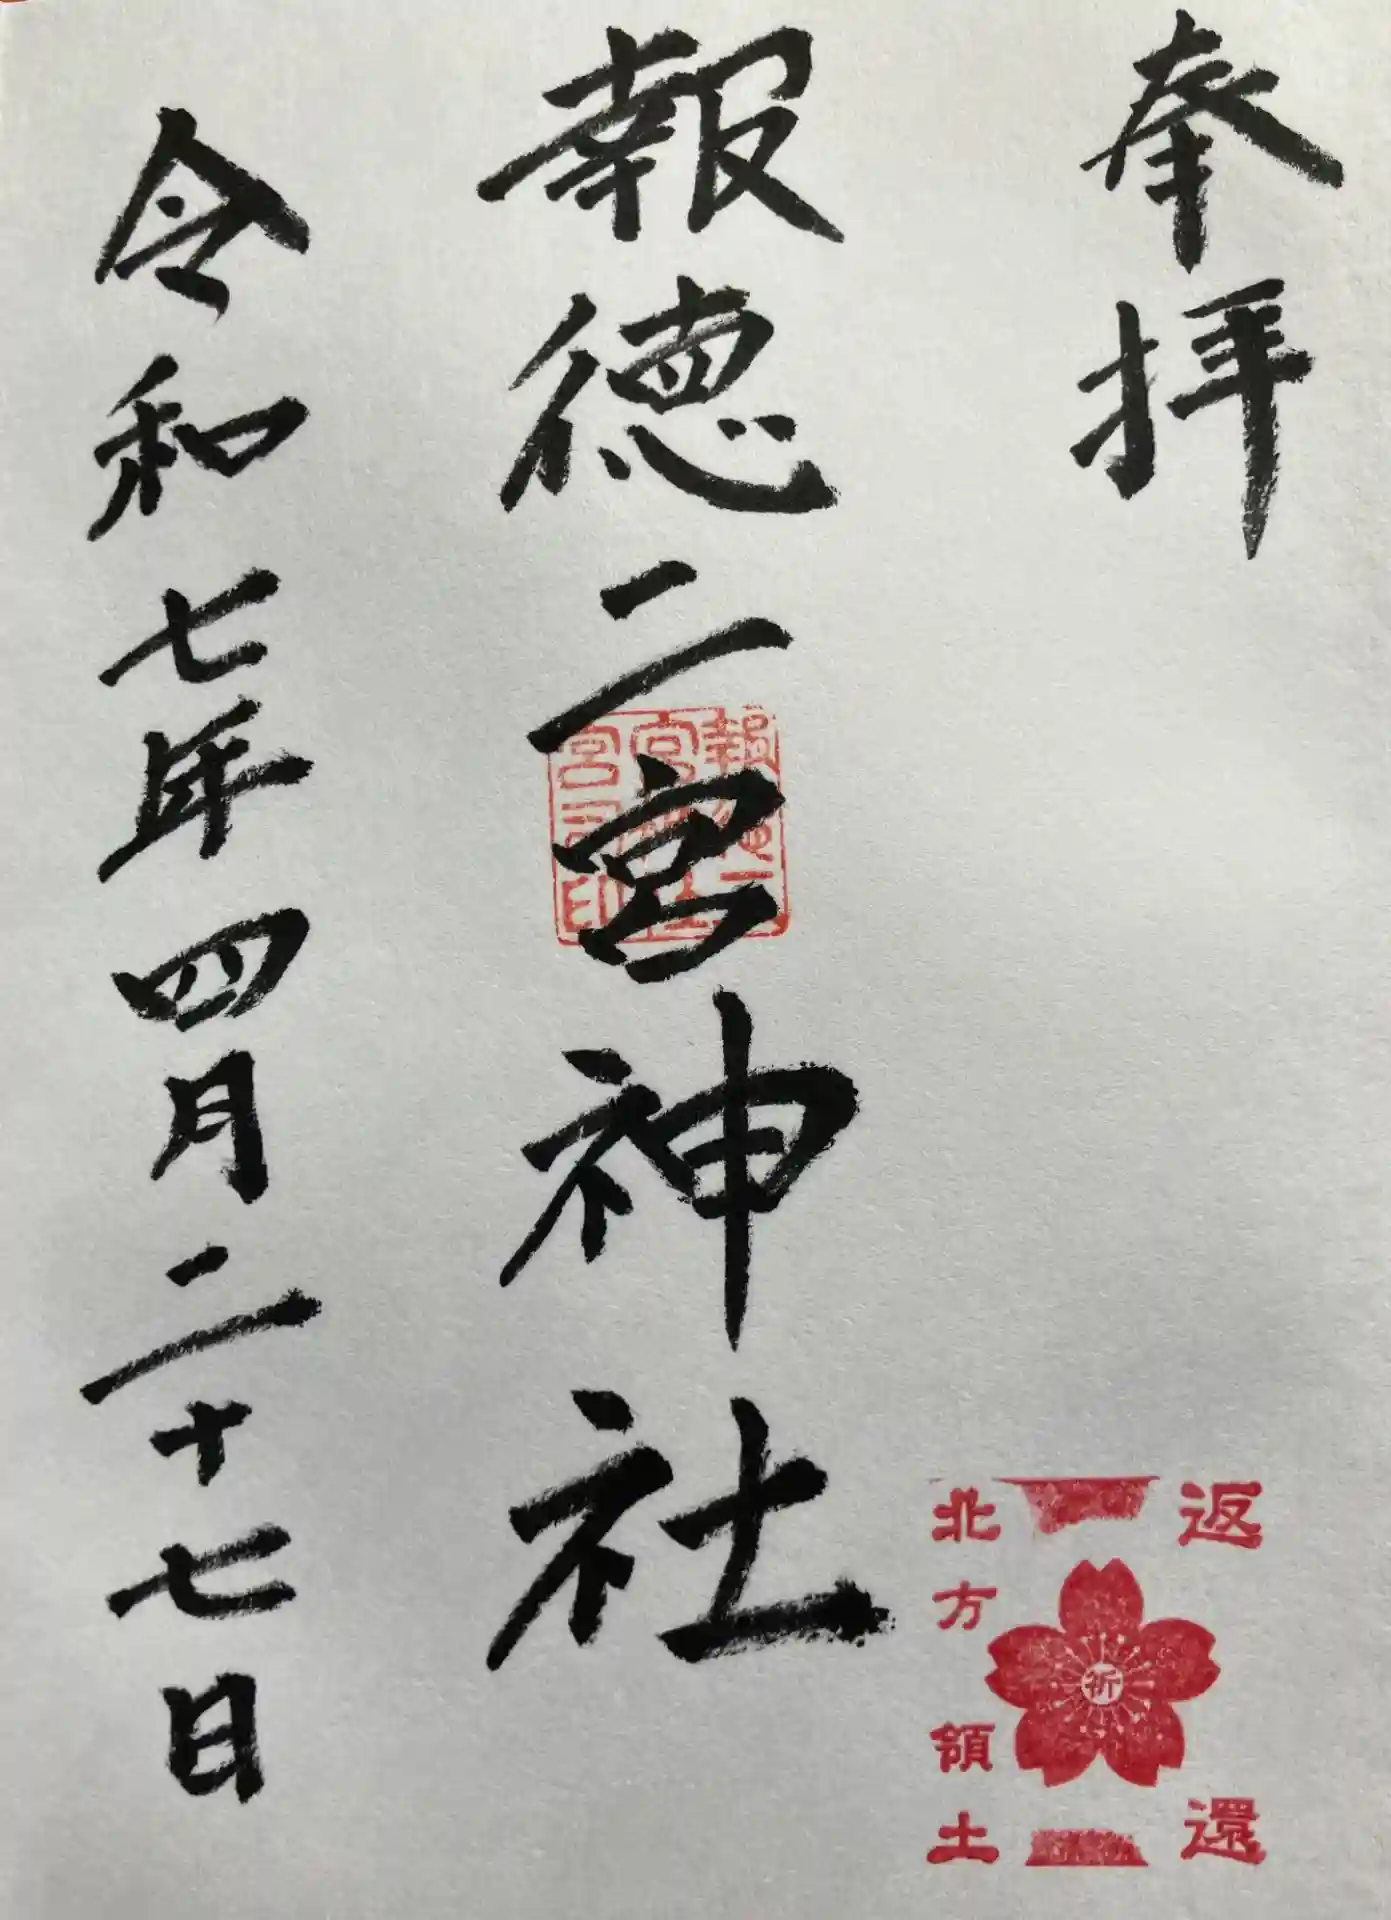 奉拝
報徳二宮神社
報徳二
宮神社
宮司印
令和七年四月二十七日
返還
祈
北方領土